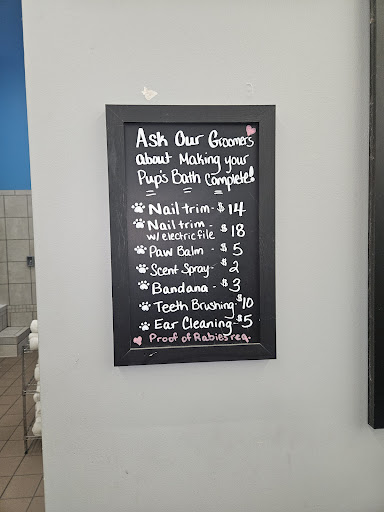 Ask Our Groomers
about Making your
Pup's Bath Complete!
Nail trim - $14
Nail trim -
w/ electric file $18
Paw Balm - $5
Scent Spray - $2
Bandana - $3
Teeth Brushing - $10
Ear Cleaning - $5
Proof of Rabies req.